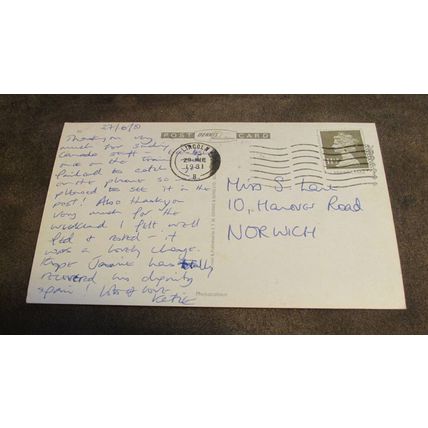 27/6/81
Thankyou very
much for sending
Canada stuff
once on the train
Failand to catch
on the phone so
pleased to see it in the
post! Also thankyou
very much for the
weekend I felt well
fed & rested - it
was a lovely change.
Hope Jannie has
recovered his dignity
again! Lots of love
Katie
POST DENNIS CARD
LINCOLN
29 JNE
1981
Miss S. Lane
10, Hanover Road
NORWICH
Photocolour